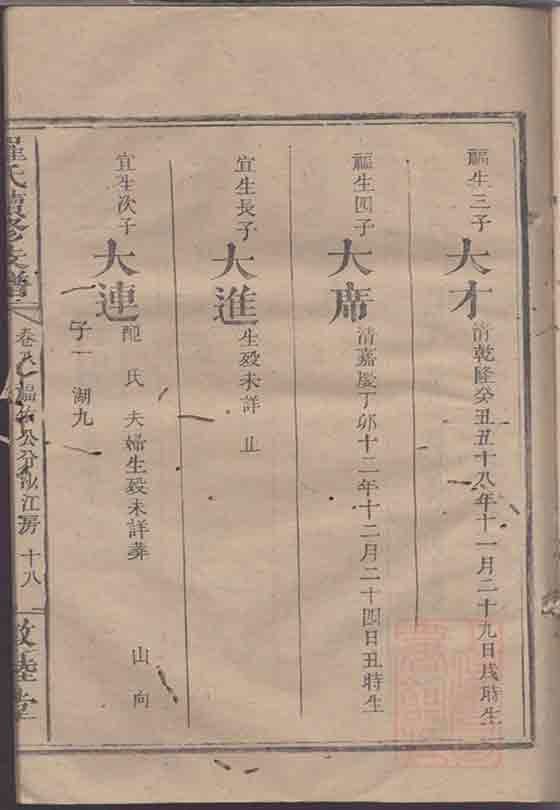 福生三子 大才 清乾隆癸丑五十八年十一月二十九日戌時生
福生四子 大席 清嘉慶丁卯十二年十二月二十四日丑時生
宜生長子 大進 生歿未詳 止
宜生次子 大連 配 氏 夫婦生歿未詳葬 山 向
子一 湖九
羅氏續修支譜 卷 公分沙江房 十八 敦睦堂